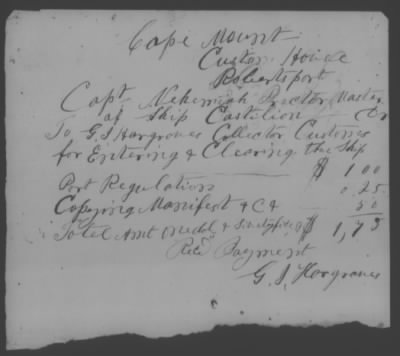 Cape Mount
Custom House
Robertsport
Capt Nehemiah Proctor Master
of Ship Castilion Dr
To G. J. Hargraves Collector Customes
for Entering & Clearing the Ship
$ 1 00
Port Regulations 0.25
Copying Manifest & C& 50
Total Amt $ 1,75
Recd Payment
G. J. Hargraves